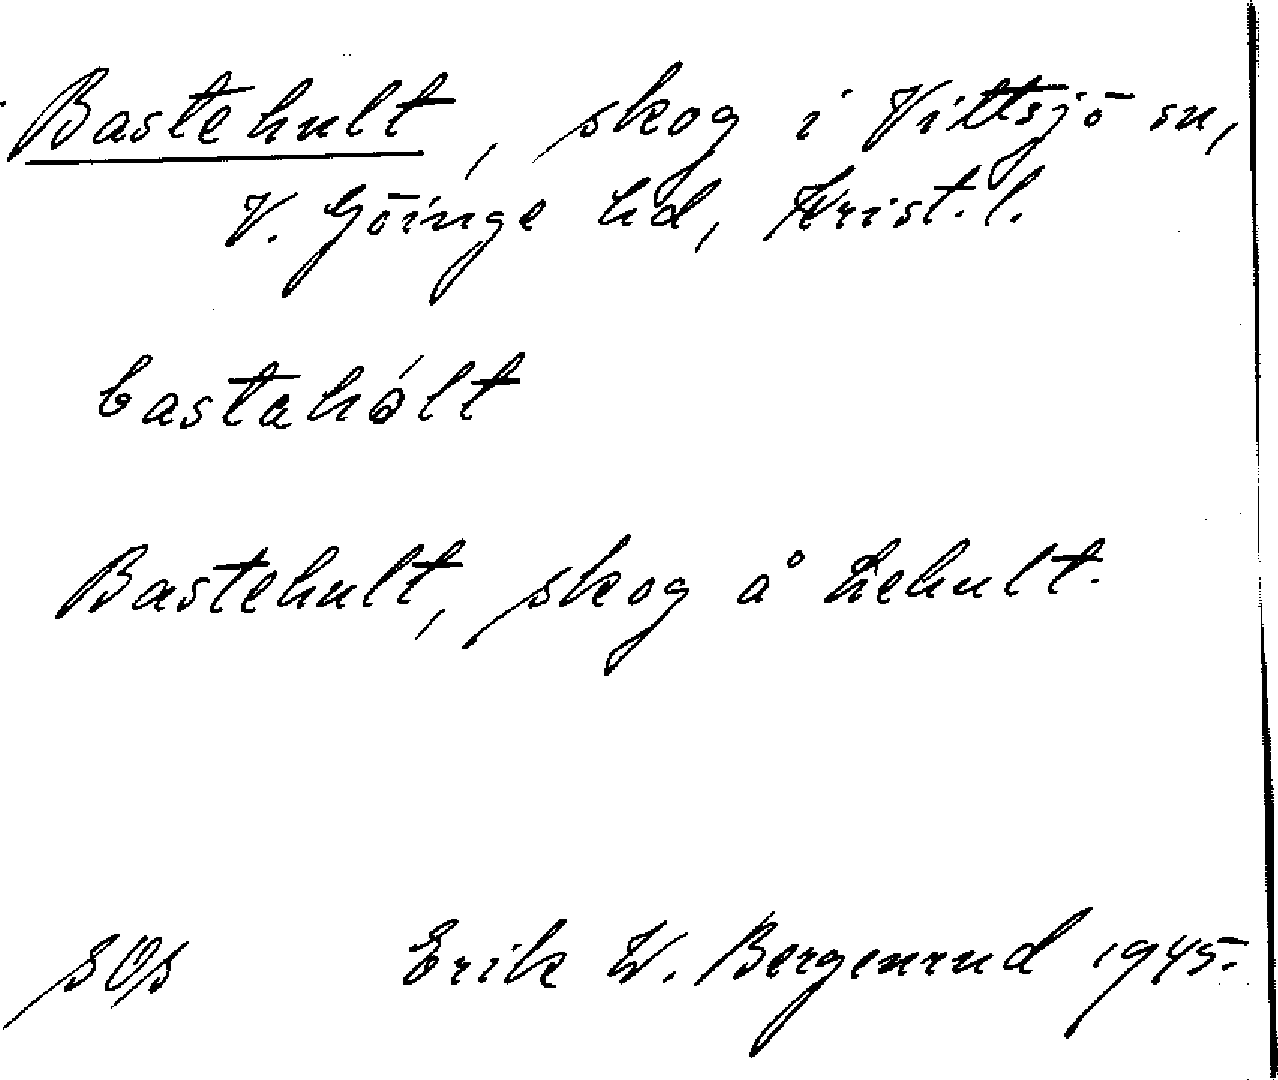 Bastehult, skog i Vittsjö sn,
V. Göinge hd, Krist. l.
bastahólt
Bastehult, skog å Lehult.
Erik W. Bergenrud 1945.